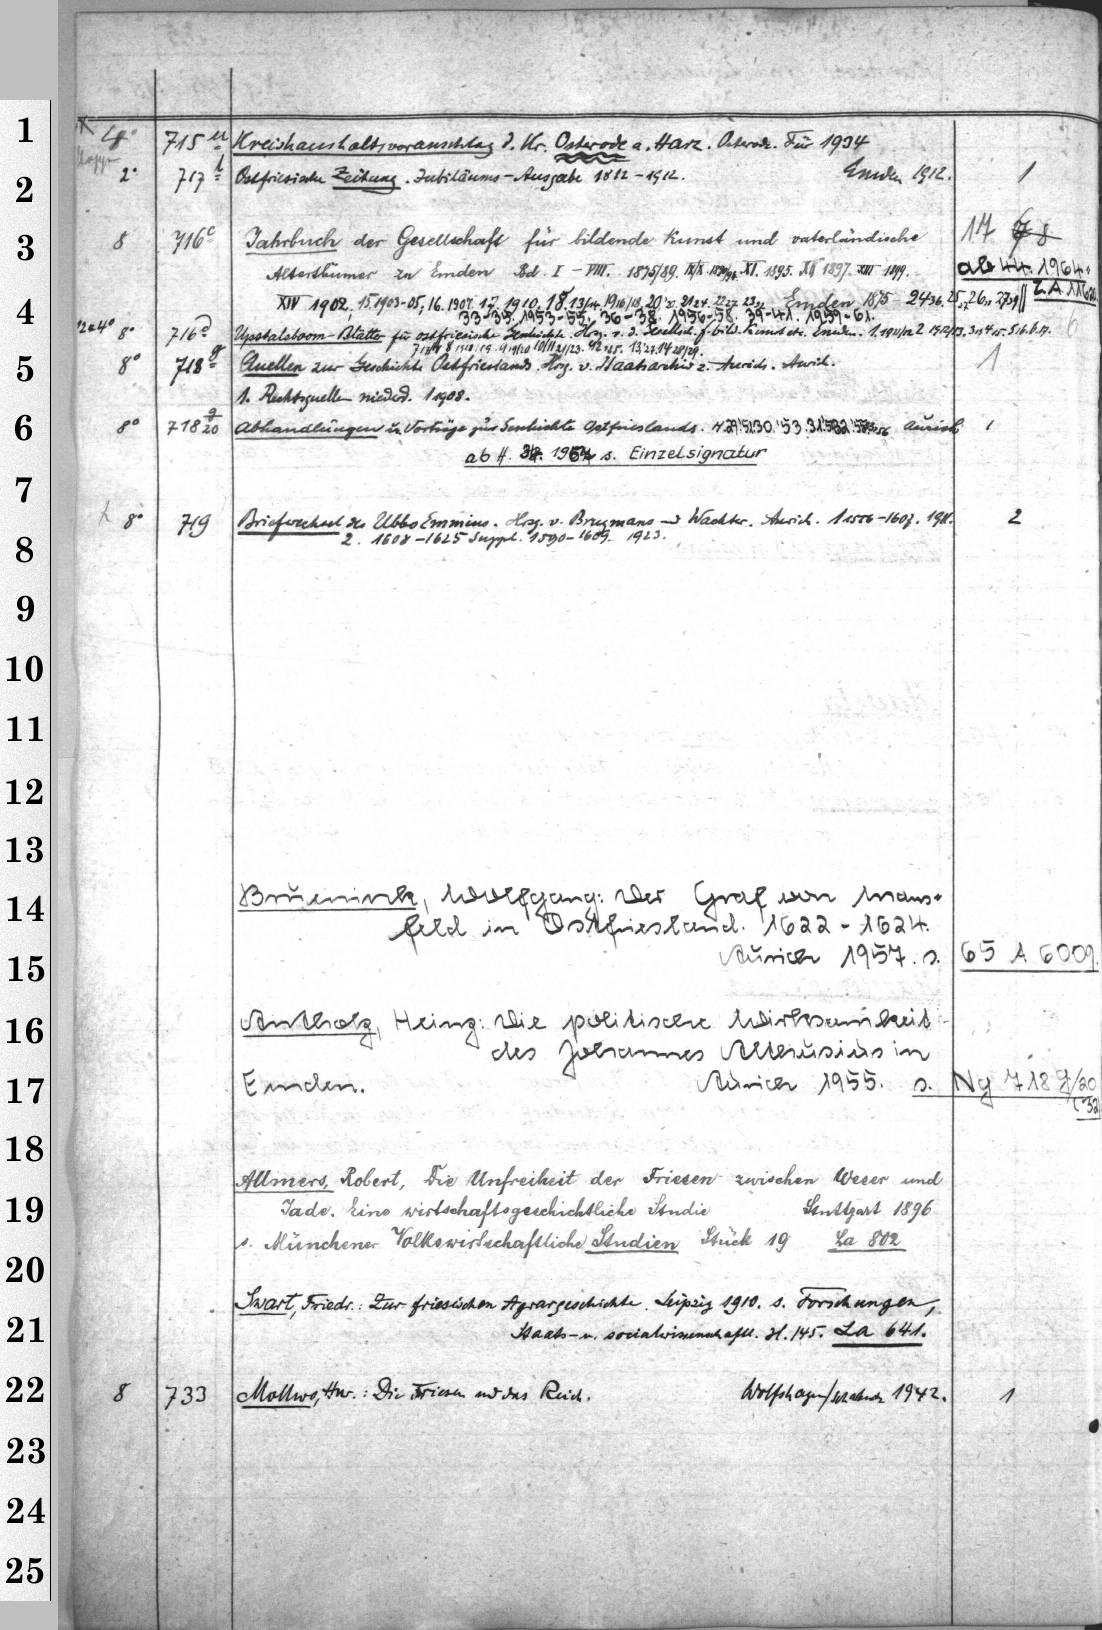 1
4° 715 u Kreishaushaltsvoranschlag d. Kr. Osterode a. Harz. Osterode. Für 1934
2
2° 717 h Ostfriesische Zeitung. Jubiläums-Ausgabe 1812-1912. Emden 1912. 1
3
8 716 c Jahrbuch der Gesellschaft für bildende Kunst und vaterländische 17
Altertümer zu Emden Bd. I - VIII. 1875/89. XI. 1895. XII 1897. XIII 1899. ab 44. 1964.
XIV 1902, 15 1903-05, 16. 1907. 17. 1910. 18. Emden 1875-
4
33-35. 1953-55, 36-38. 1956-58. 39-41. 1959-61.
8° 716 d Upstalsboom-Blätter für ostfriesische Geschichte. Hrsg. v. d. Gesellsch. f. bild. Kunst etc. Emden. 1. 1911/12
5
8° 718 g Quellen zur Geschichte Ostfrieslands. Hrsg. v. Staatsarchiv z. Aurich. Aurich. 1
1. Rechtsquellen niederd. 1 1908.
6
8° 718 g/20 Abhandlungen u. Vorträge zur Geschichte Ostfrieslands. Aurich 1
ab H. s. Einzelsignatur
7
8° 719 Briefwechsel des Ubbo Emmius. Hrsg. v. Brugmans u. Wachter. Aurich. 1 1556-1607. 1911. 2
2. 1608-1625 Suppl. 1590-1609. 1923.
8
9
10
11
12
13
14
Brünink, Wolfgang: Der Graf von Mans=
feld in Ostfriesland. 1622 - 1624.
15
Aurich 1957. s. 65 A 6009.
16
Antholz, Heinz: Die politische Wirksamkeit
des Johannes Althusius in
17
Emden. Aurich 1955. s. Ng 718 g/20
(32
18
19
Allmers, Robert, Die Unfreiheit der Friesen zwischen Weser und
Jade. Eine wirtschaftsgeschichtliche Studie Stuttgart 1896
s. Münchener Volkswirtschaftliche Studien Stück 19 La 802
20
21
Swart, Friedr.: Zur friesischen Agrargeschichte. Leipzig 1910. s. Forschungen,
Staats- u. socialwissenschaftl. H. 145. La 641.
22
8 733 Mollwo, Hw.: Die Friesen und das Reich. Wolfshagen/Scharbeutz 1942. 1
23
24
25